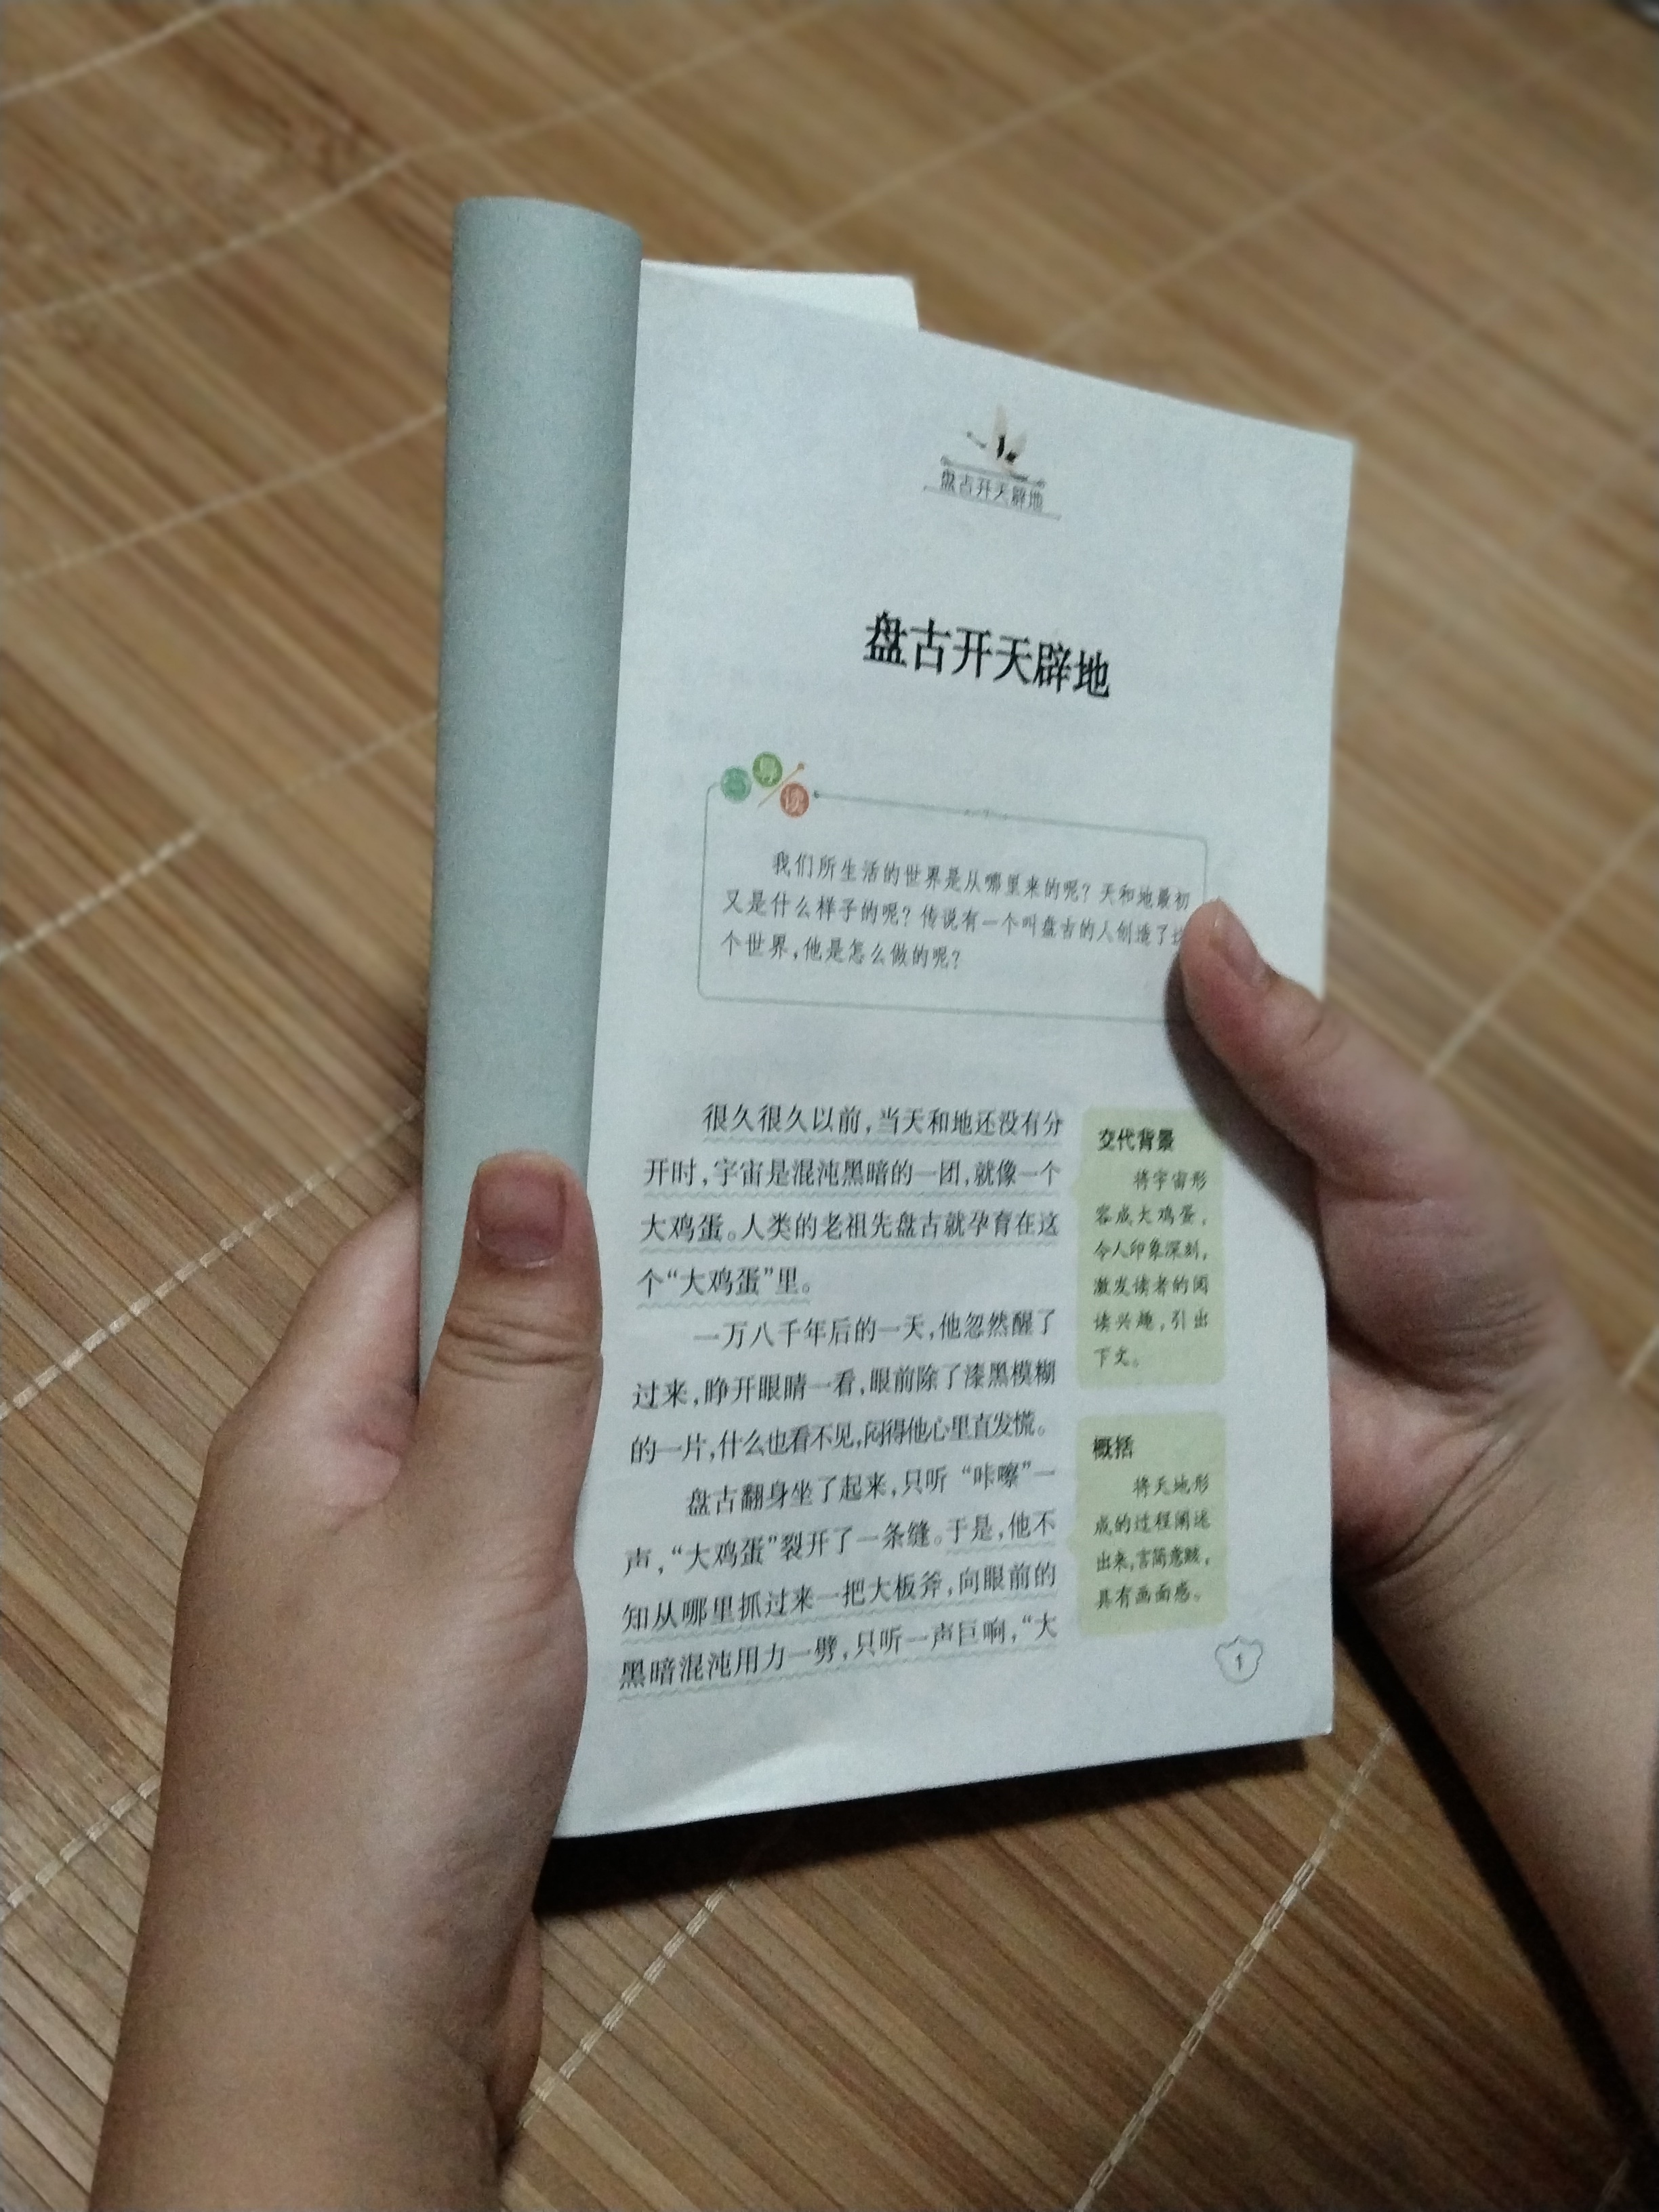 盘古开天辟地
盘古开天辟地
导读
我们所生活的世界是从哪里来的呢？天和地最初
又是什么样子的呢？传说有一个叫盘古的人创造了
个世界，他是怎么做的呢？
很久很久以前，当天和地还没有分
开时，宇宙是混沌黑暗的一团，就像一个
大鸡蛋。人类的老祖先盘古就孕育在这
个“大鸡蛋”里。
一万八千年后的一天，他忽然醒了
过来，睁开眼睛一看，眼前除了漆黑模糊
的一片，什么也看不见，闷得他心里直发慌。
盘古翻身坐了起来，只听“咔嚓”一
声，“大鸡蛋”裂开了一条缝。于是，他不
知从哪里抓过来一把大板斧，向眼前的
黑暗混沌用力一劈，只听一声巨响，“大
交代背景
将宇宙形
容成大鸡蛋，
令人印象深刻，
激发读者的阅
读兴趣，引出
下文。
概括
将天地形
成的过程阐述
出来，言简意赅，
具有画面感。
1